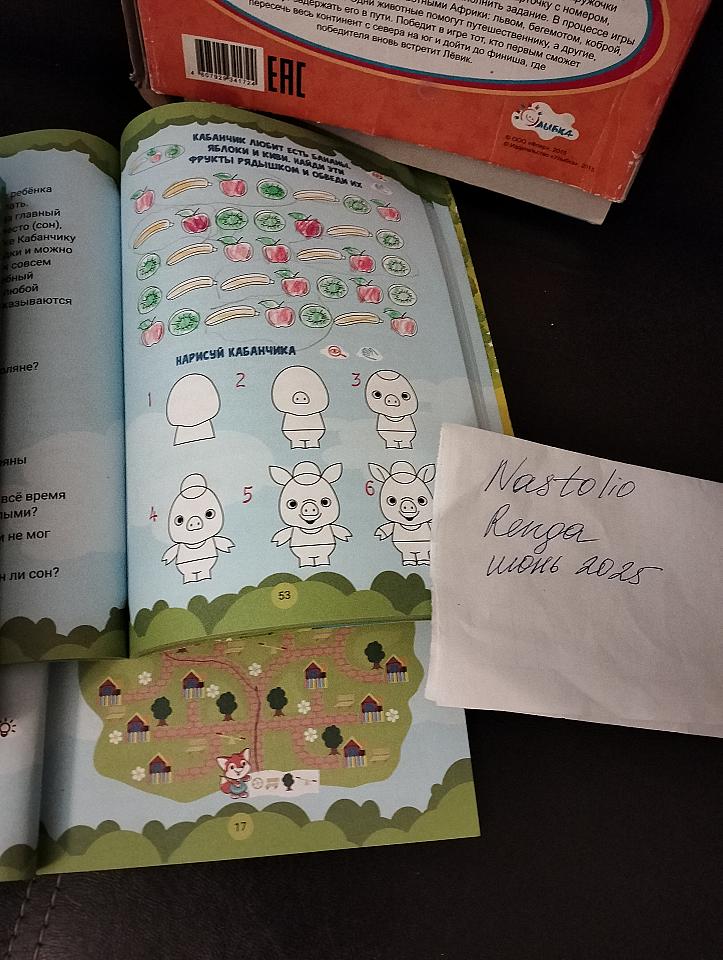 рточку с номером,
полнить задание. В процессе игры
отными Африки: львом, бегемотом, коброй,
Одни животные помогут путешественнику, а другие,
задержать его в пути. Победит в игре тот, кто первым сможет
пересечь весь континент с севера на юг и дойти до финиша, где
победителя вновь встретит Лёвик.
4 607929 341724
ЕАС
УЛЫБКА
© ООО «Флер», 2015
© Издательство «Улыбка», 2015
ребёнка
главный
место (сон),
Кабанчику
и можно
совсем
любой
казываются
всё время
ыми?
и не мог
ли сон?
КАБАНЧИК ЛЮБИТ ЕСТЬ БАНАНЫ,
ЯБЛОКИ И КИВИ. НАЙДИ ЭТИ
ФРУКТЫ РЯДЫШКОМ И ОБВЕДИ ИХ
НАРИСУЙ КАБАНЧИКА
1 2 3
4 5 6
53
17
Nastolio
Renga
июнь 2025